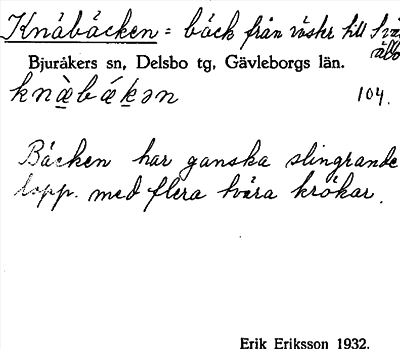 Knäbäcken = bäck från väster till
Bjuråkers sn, Delsbo tg, Gävleborgs län.
knæ̀bækən 104.
Bäcken har ganska slingrande
lopp. med flera tvära krökar.
Erik Eriksson 1932.